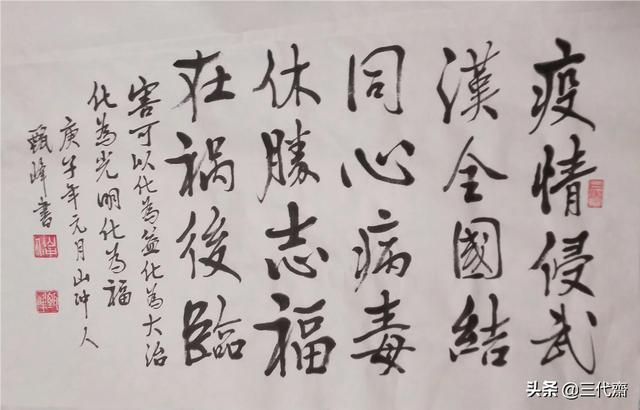 疫情侵武
漢全國結
同心病毒
休勝志福
在禍後臨
害可以化為益化為大治
化為光明化為福
庚子年元月山沖人
甄峰書
头条 @三代齋